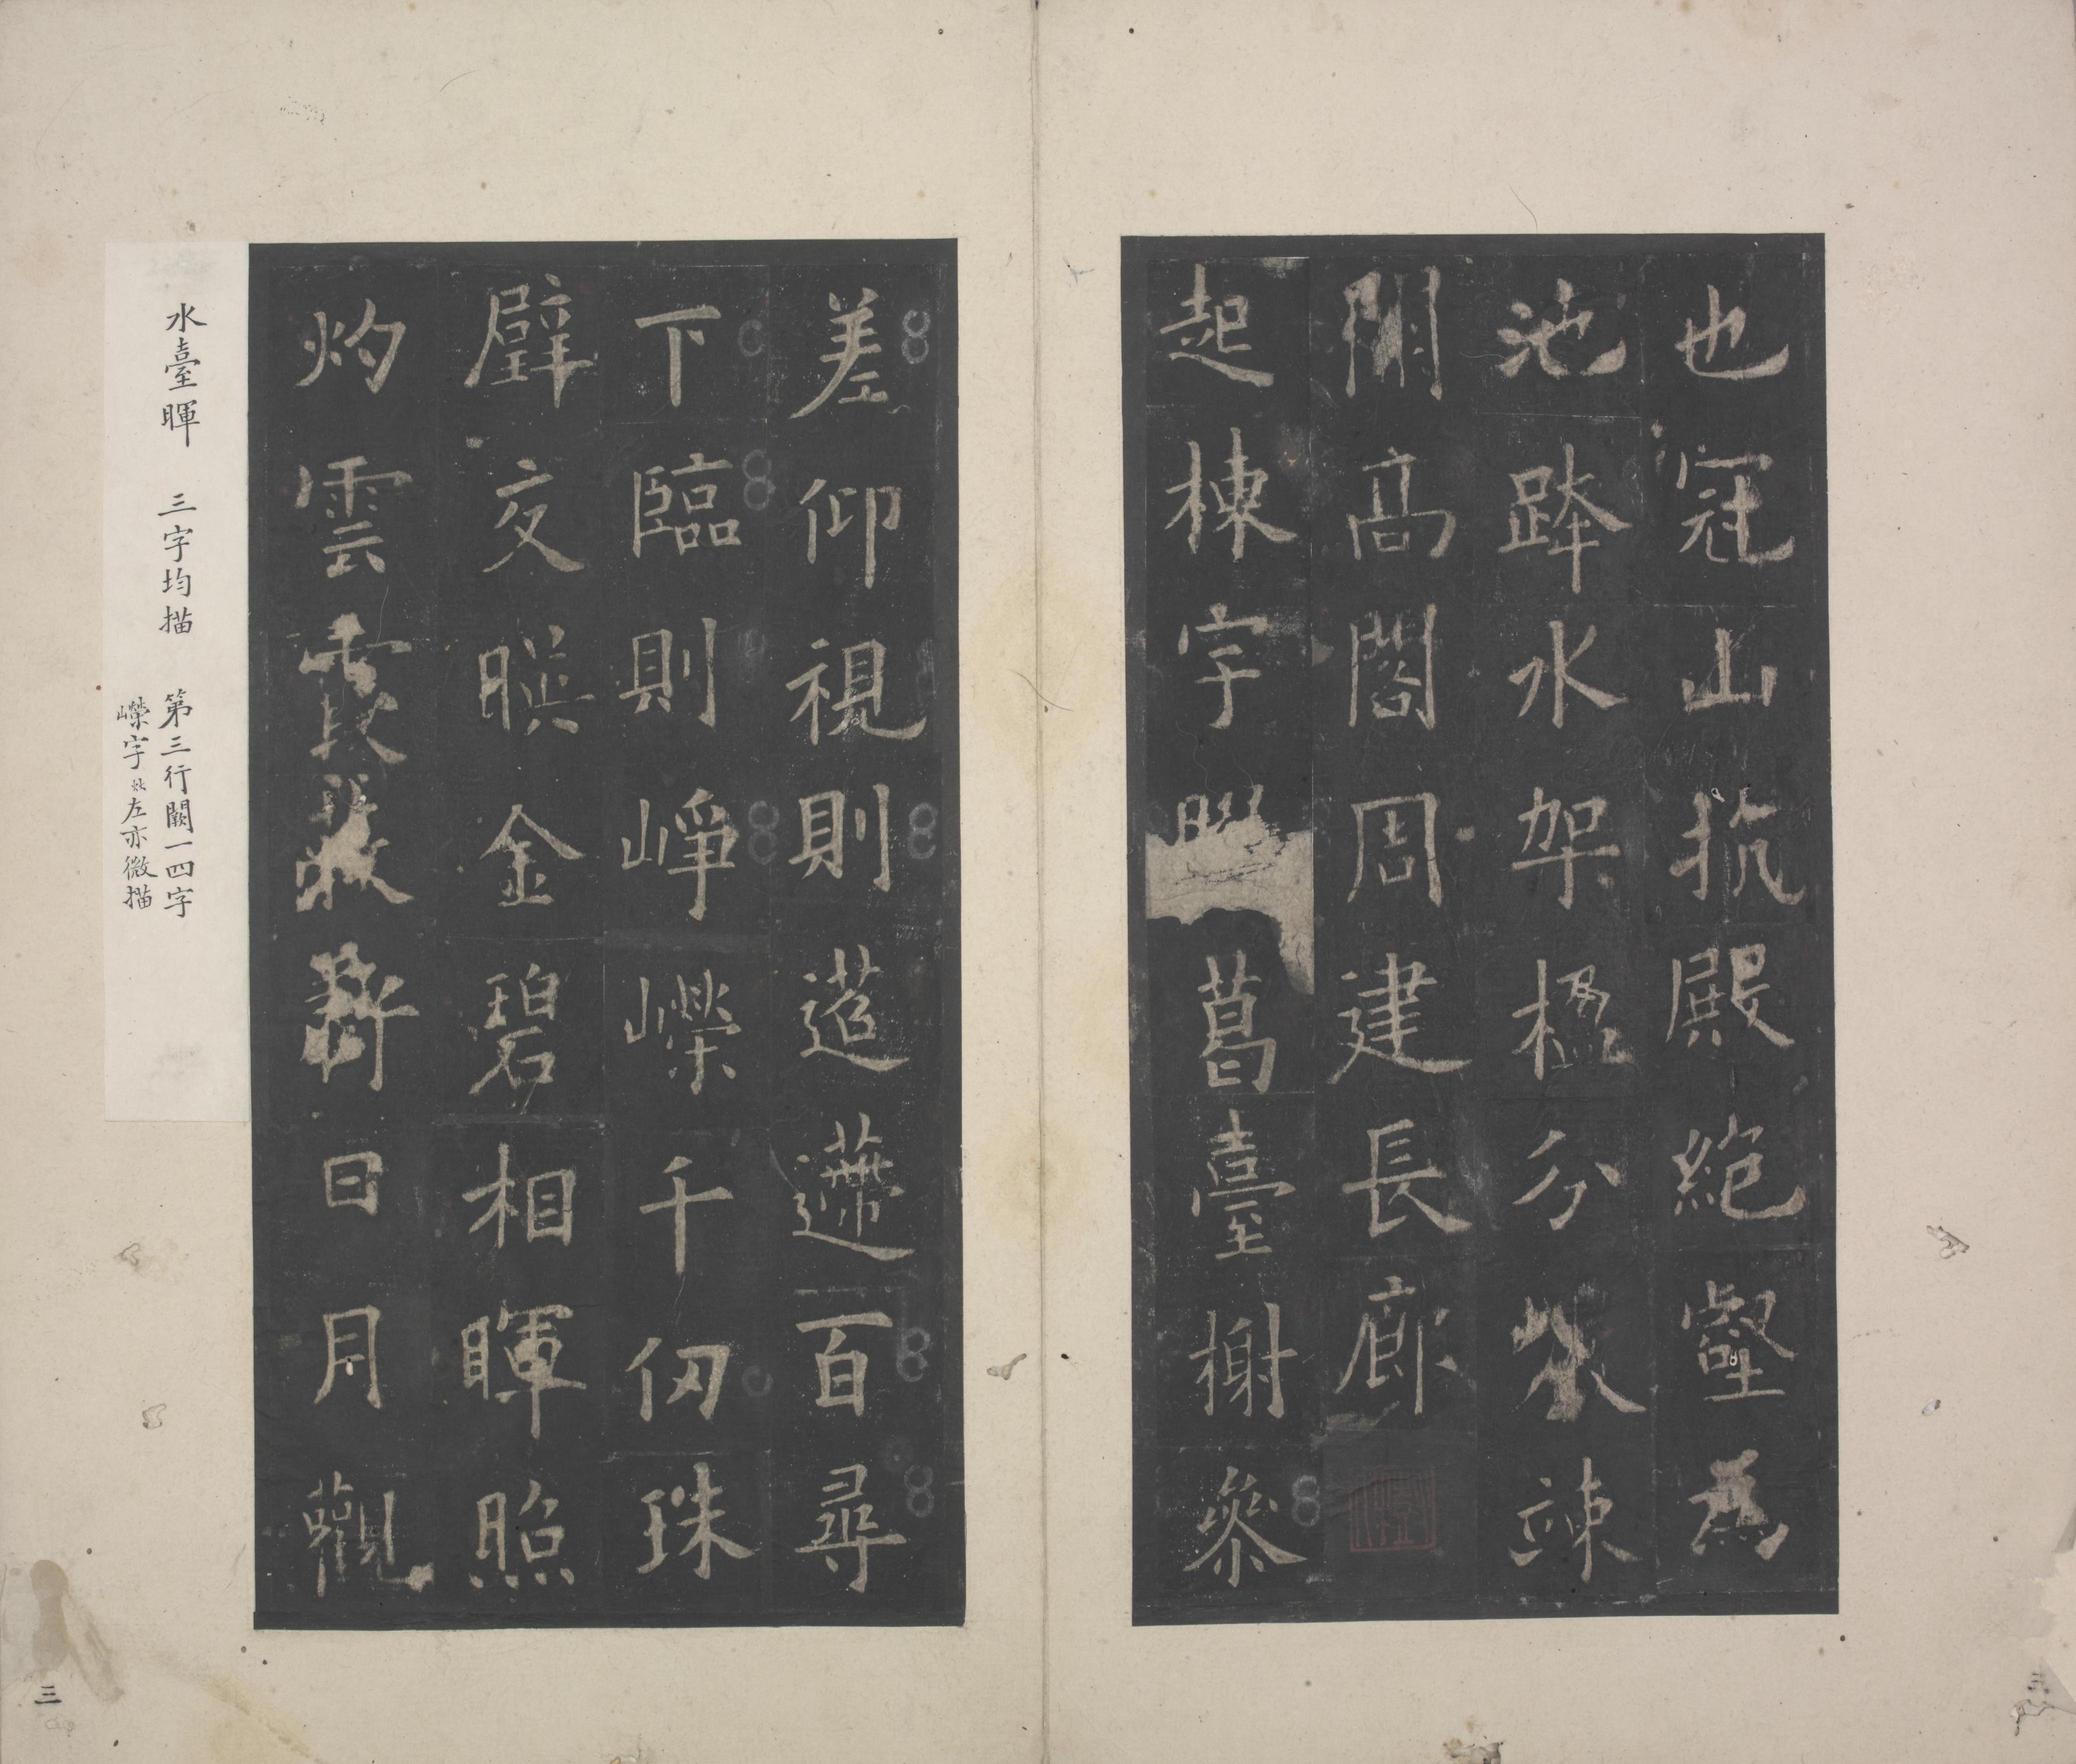 也冠山抗殿絶壑爲
池跨水架楹分巖竦
闕高閣周建長廊
起棟宇膠葛臺榭參
差仰視則迢遰百尋
下臨則崢嶸千仞珠
璧交暎金碧相暉照
灼雲霞蔽虧日月觀
水臺暉 三字均描 第三行闕一四字
嶸字 左亦微描
三